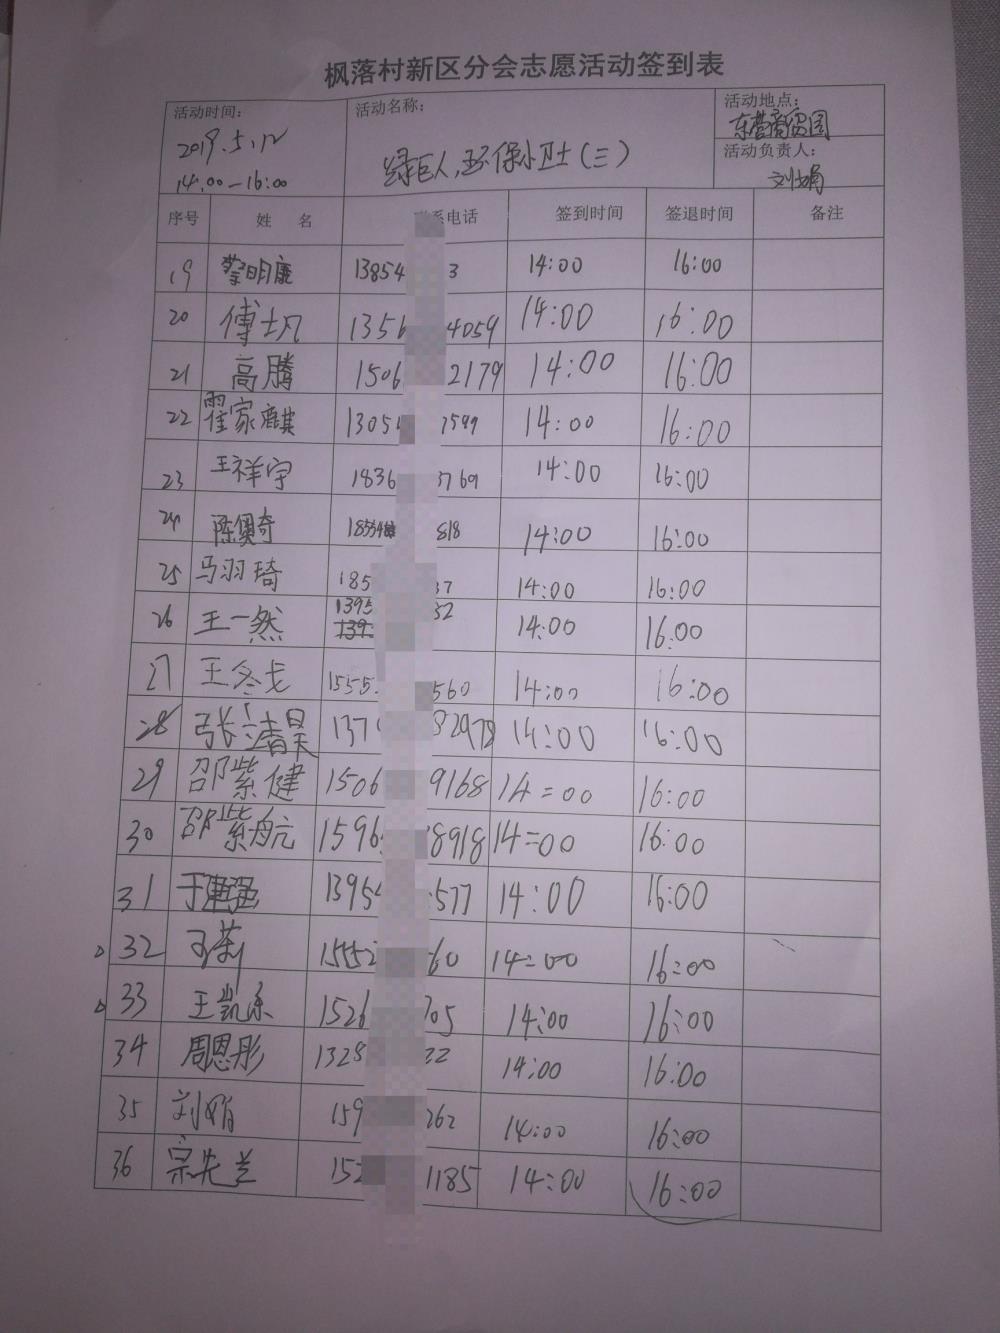 枫落村新区分会志愿活动签到表
活动时间: 2019.5.12 14:00-16:00
活动名称: 绿巨人,环保小卫士(三)
活动地点: 东营商贸园
活动负责人: 刘娟
序号 姓名 系电话 签到时间 签退时间 备注
19 蔡明康 13854 3 14:00 16:00
20 傅士凡 1356 4059 14:00 16:00
21 高腾 1506 2179 14:00 16:00
22 翟家麒 1305 7599 14:00 16:00
23 王祥宇 1836 3769 14:00 16:00
24 陈奥奇 18554 818 14:00 16:00
25 马羽琦 185 37 14:00 16:00
26 王一然 1395 52 14:00 16:00
27 王冬戈 1555 560 14:00 16:00
28 张清昊 137 82978 14:00 16:00
29 邵紫健 1506 9168 14=00 16:00
30 邵紫航 1596 8918 14=00 16:00
31 于建强 1395 577 14:00 16:00
32 王莉 15552 60 14=00 16=00
33 王凯 1526 705 14:00 16:00
34 周恩彤 1328 22 14:00 16:00
35 刘娟 159 262 14:00 16:00
36 宗先兰 152 1185 14:00 16:00